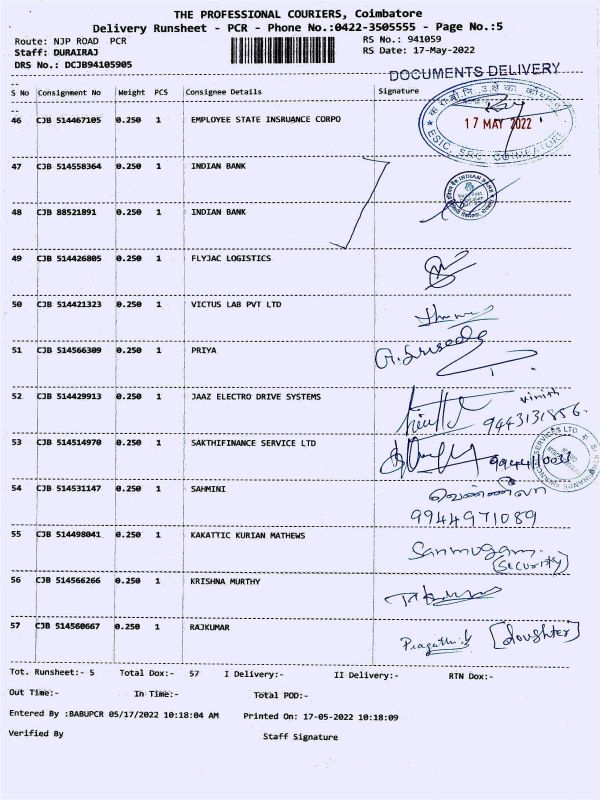 THE PROFESSIONAL COURIERS, Coimbatore
Delivery Runsheet - PCR - Phone No.:0422-3505555 - Page No.:5
Route: NJP ROAD PCR
RS No.: 941059
Staff: DURAIRAJ
RS Date: 17-May-2022
DRS No.: DCJB94105905
DOCUMENTS DELIVERY
S No Consignment No Weight PCS Consignee Details Signature
46 CJB 514467105 0.250 1 EMPLOYEE STATE INSRUANCE CORPO
17 MAY 2022
47 CJB 514558364 0.250 1 INDIAN BANK
INDIAN BANK
48 CJB 88521891 0.250 1 INDIAN BANK
49 CJB 514426805 0.250 1 FLYJAC LOGISTICS
50 CJB 514421323 0.250 1 VICTUS LAB PVT LTD
51 CJB 514566309 0.250 1 PRIYA
52 CJB 514429913 0.250 1 JAAZ ELECTRO DRIVE SYSTEMS
vinith
9443131856.
53 CJB 514514970 0.250 1 SAKTHIFINANCE SERVICE LTD
54 CJB 514531147 0.250 1 SAHMINI
9944971089
55 CJB 514498041 0.250 1 KAKATTIC KURIAN MATHEWS
Sanmugam.
(Security)
56 CJB 514566266 0.250 1 KRISHNA MURTHY
57 CJB 514560667 0.250 1 RAJKUMAR
[doughter]
Tot. Runsheet:- 5 Total Dox:- 57 I Delivery:- II Delivery:- RTN Dox:-
Out Time:- In Time:- Total POD:-
Entered By :BABUPCR 05/17/2022 10:18:04 AM Printed On: 17-05-2022 10:18:09
Verified By Staff Signature